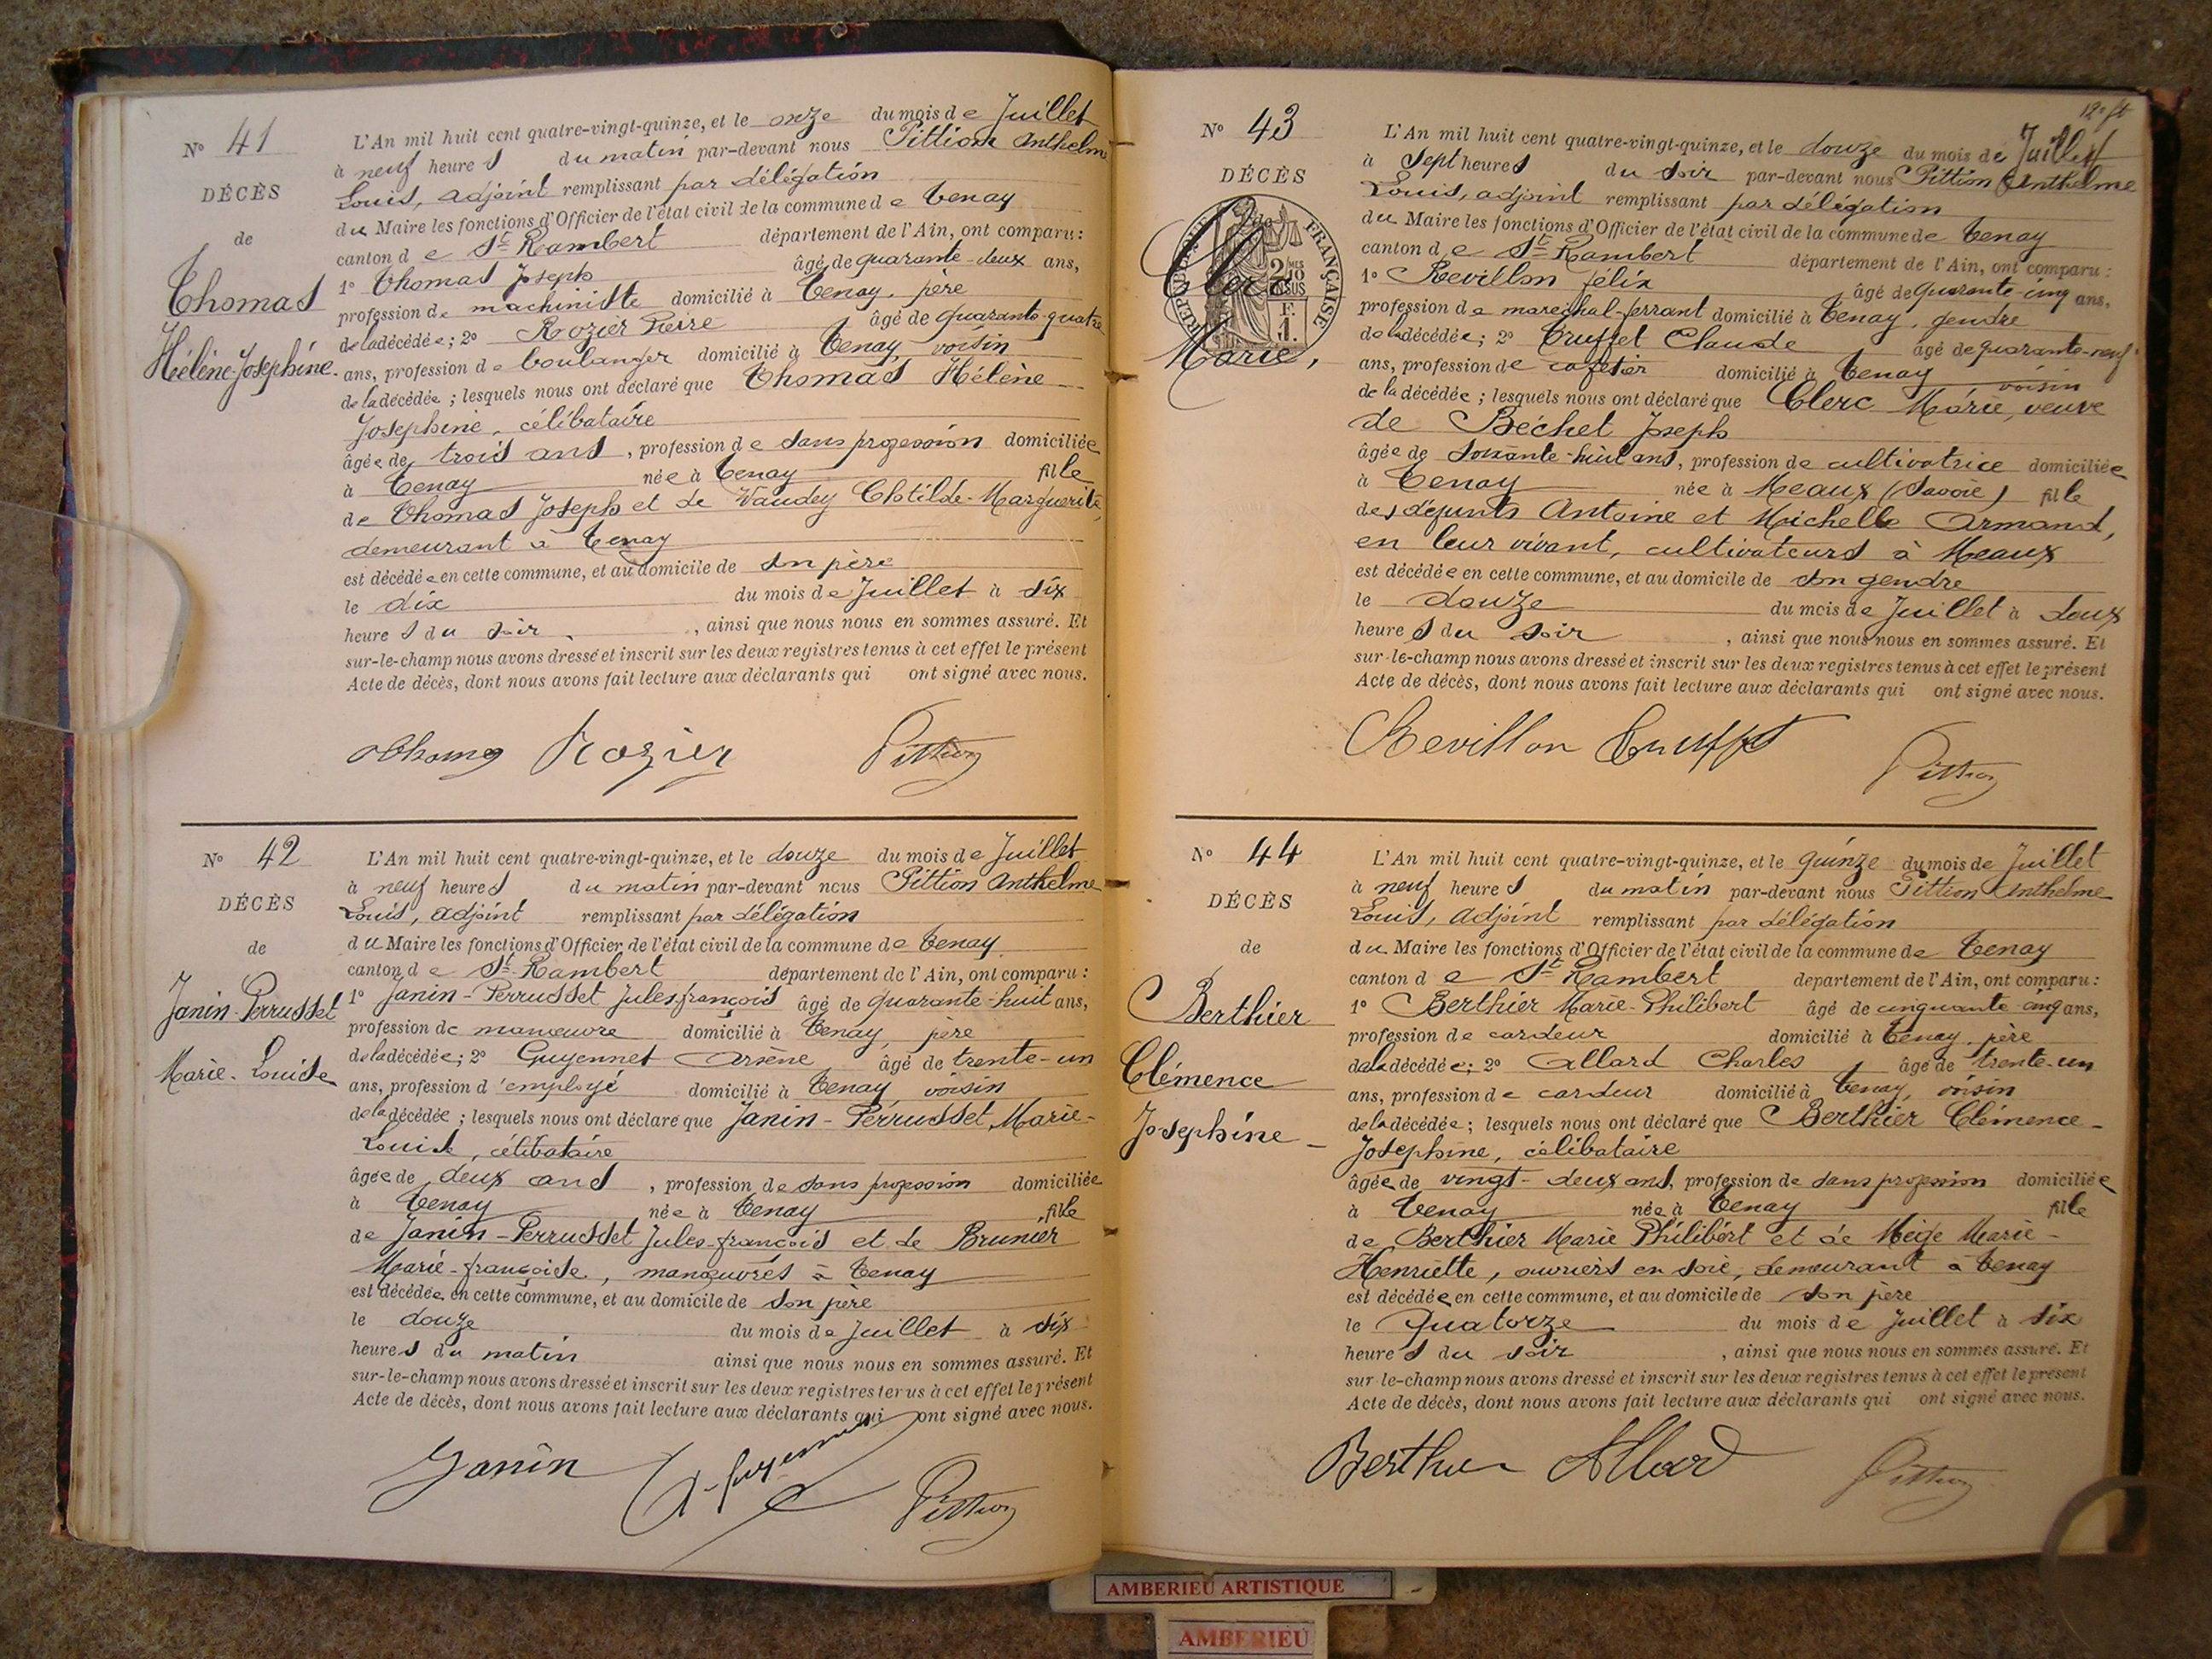 N° 41
DÉCÈS
de
Thomas
Hélène-Joséphine
L'An mil huit cent quatre-vingt-quinze, et le onze du mois de Juillet
à neuf heures du matin par-devant nous Pittion Anthelme
Louis, adjoint remplissant par délégation
du Maire les fonctions d'Officier de l'état civil de la commune de Tenay
canton de St Rambert département de l'Ain, ont comparu :
1° Thomas Joseph âgé de quarante-deux ans,
profession de machiniste domicilié à Tenay, père
de la décédée ; 2° Rozier Pierre âgé de quarante-quatre
ans, profession de boulanger domicilié à Tenay voisin
de la décédée ; lesquels nous ont déclaré que Thomas Hélène
Joséphine, célibataire
âgée de trois ans, profession de sans profession domiciliée
à Tenay née à Tenay fille
de Thomas Joseph et de Vaudey Clotilde-Marguerite,
demeurant à Tenay
est décédée en cette commune, et au domicile de son père
le dix du mois de Juillet à six
heures du soir, ainsi que nous nous en sommes assuré. Et
sur-le-champ nous avons dressé et inscrit sur les deux registres tenus à cet effet le présent
Acte de décès, dont nous avons fait lecture aux déclarants qui ont signé avec nous.
Thomas Rozier Pittion
N° 42
DÉCÈS
de
Janin-Perrusset
Marie-Louise
L'An mil huit cent quatre-vingt-quinze, et le douze du mois de Juillet
à neuf heures du matin par-devant nous Pittion Anthelme
Louis, adjoint remplissant par délégation
du Maire les fonctions d'Officier de l'état civil de la commune de Tenay
canton de St Rambert département de l'Ain, ont comparu :
1° Janin-Perrusset Jules françois âgé de quarante-huit ans,
profession de manœuvre domicilié à Tenay, père
de la décédée ; 2° Guyennet Arsène âgé de trente-un
ans, profession d'employé domicilié à Tenay, voisin
de la décédée ; lesquels nous ont déclaré que Janin-Perrusset, Marie-
Louise, célibataire
âgée de deux ans, profession de sans profession domiciliée
à Tenay née à Tenay fille
de Janin-Perrusset Jules-françois et de Brunier
Marie-françoise, manœuvres à Tenay
est décédée en cette commune, et au domicile de son père
le douze du mois de Juillet à six
heures du matin ainsi que nous nous en sommes assuré. Et
sur-le-champ nous avons dressé et inscrit sur les deux registres tenus à cet effet le présent
Acte de décès, dont nous avons fait lecture aux déclarants qui ont signé avec nous.
Janin A. Guyennet Pittion
N° 43
DÉCÈS
RÉPUBLIQUE FRANÇAISE
2/10 MES
EN SUS
F.
1.
Clerc
Marie,
L'An mil huit cent quatre-vingt-quinze, et le douze du mois de Juillet
à sept heures du soir par-devant nous Pittion Anthelme
Louis, adjoint remplissant par délégation
du Maire les fonctions d'Officier de l'état civil de la commune de Tenay
canton de St Rambert département de l'Ain, ont comparu :
1° Revillon félix âgé de quarante-cinq ans,
profession de maréchal-ferrant domicilié à Tenay, gendre
de la décédée ; 2° Truffet Claude âgé de quarante-neuf
ans, profession de cafetier domicilié à Tenay voisin
de la décédée ; lesquels nous ont déclaré que Clerc Marie, veuve
de Béchet Joseph
âgée de soixante-huit ans, profession de cultivatrice domiciliée
à Tenay née à Meaux (Savoie) fille
des défunts Antoine et Michelle Armand,
en leur vivant, cultivateurs à Meaux
est décédée en cette commune, et au domicile de son gendre
le douze du mois de Juillet à deux
heures du soir, ainsi que nous nous en sommes assuré. Et
sur-le-champ nous avons dressé et inscrit sur les deux registres tenus à cet effet le présent
Acte de décès, dont nous avons fait lecture aux déclarants qui ont signé avec nous.
Revillon Truffet Pittion
N° 44
DÉCÈS
de
Berthier
Clémence
Joséphine
L'An mil huit cent quatre-vingt-quinze, et le quinze du mois de Juillet
à neuf heures du matin par-devant nous Pittion Anthelme
Louis, adjoint remplissant par délégation
du Maire les fonctions d'Officier de l'état civil de la commune de Tenay
canton de St Rambert département de l'Ain, ont comparu :
1° Berthier Marie-Philibert âgé de cinquante-cinq ans,
profession de cardeur domicilié à Tenay, père
de la décédée ; 2° Allard Charles âgé de trente-un
ans, profession de cardeur domicilié à Tenay, voisin
de la décédée ; lesquels nous ont déclaré que Berthier Clémence-
Joséphine, célibataire
âgée de vingt-deux ans, profession de sans profession domiciliée
à Tenay née à Tenay fille
de Berthier Marie Philibert et de Meige Marie-
Henriette, ouvriers en soie, demeurant à Tenay
est décédée en cette commune, et au domicile de son père
le Quatorze du mois de Juillet à six
heures du soir, ainsi que nous nous en sommes assuré. Et
sur-le-champ nous avons dressé et inscrit sur les deux registres tenus à cet effet le présent
Acte de décès, dont nous avons fait lecture aux déclarants qui ont signé avec nous.
Berthier Allard Pittion
AMBERIEU ARTISTIQUE
AMBERIEU